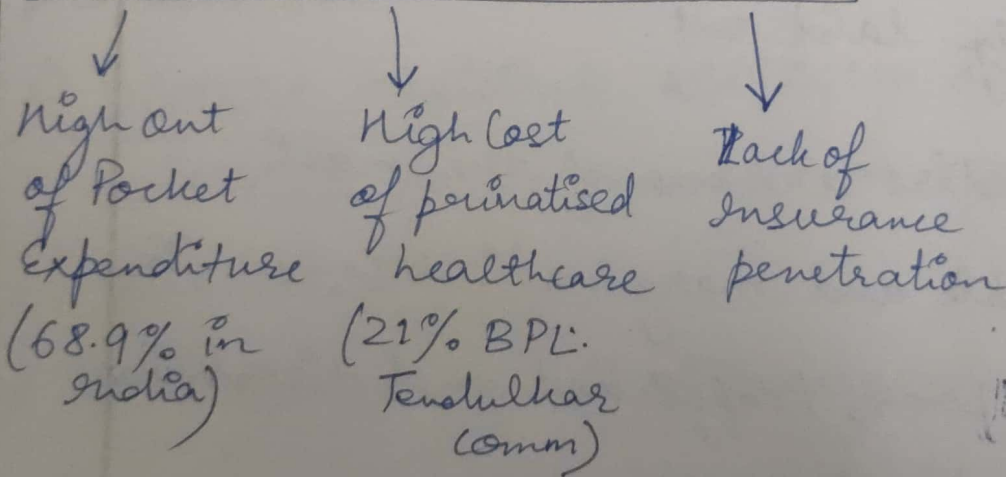 High out
of Pocket
Expenditure
(68.9% in
India)
High Cost
of privatised
healthcare
(21% BPL:
Tendulkar
Comm)
Lack of
Insurance
penetration